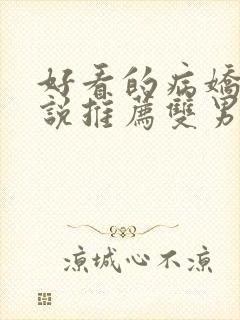 好看的病嬌
說推薦雙男
涼城心不涼